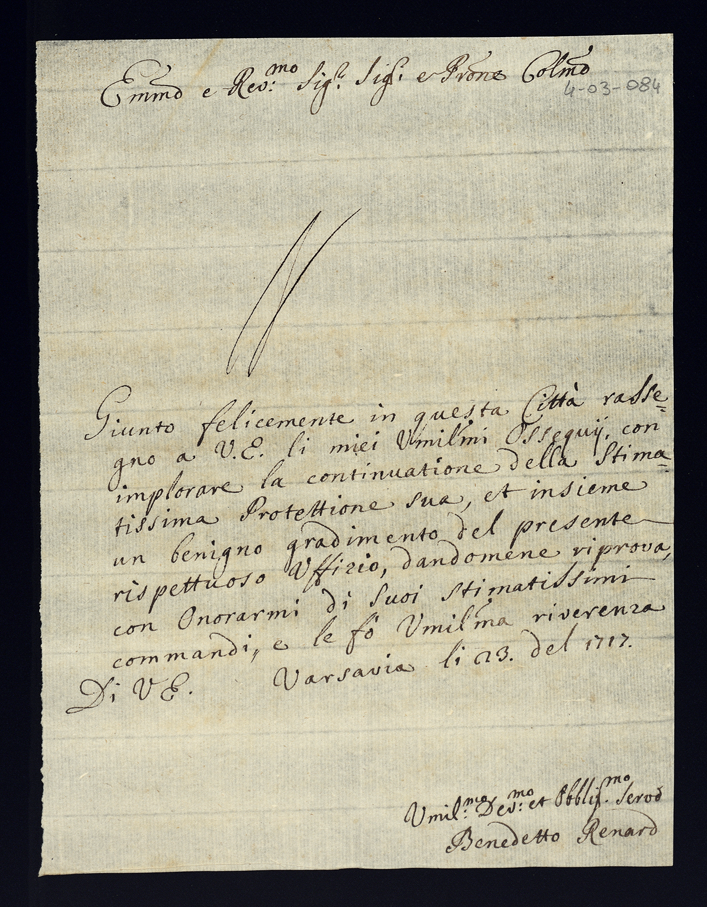 Emmo e Rev:mo Sigr. Sigr. e Prone Colmo
4-03-084
Giunto felicemente in questa Città rasse=
gno a V.E. li miei Umilmi Ossequij, con
implorare la continuatione della Stima=
tissima Protettione sua, et insieme
un benigno gradimento del presente
rispettuoso Uffizio, dandomene riprova,
con Onorarmi di Suoi Stimatissimi
commandi, e le fò Umilma riverenza
Di V.E. Varsavia li 23. del 1717.
Umil:mo Dev:mo et Obblig:mo Servo
Benedetto Renard